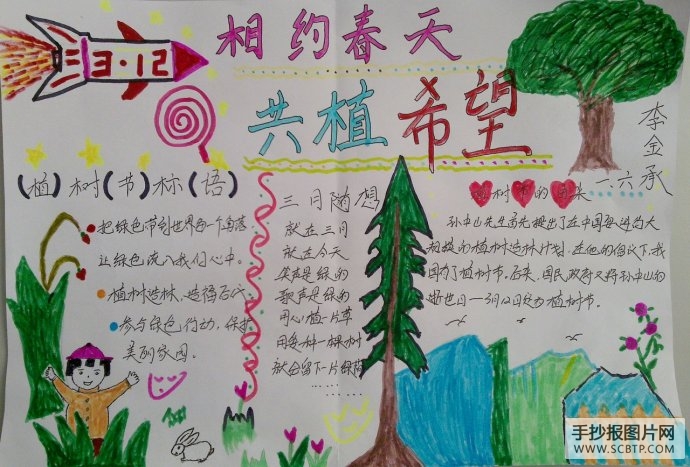 3·12
相约春天
共植希望
李金承
一、六
(植)树(节)标(语)
把绿色带到世界每一个角落
让绿色流入我们心中。
植树造林,造福后代。
参与绿色行动,保护
美丽家园。
三月随想
就在三月
就在今天
笑声是绿的
歌声是绿的
用心植一片草
用爱种一棵树
就会留下一片绿荫
…… ……
树节的由来
孙中山先生首先提出了在中国
规模的植树造林计划,在他的倡议下,我
国有了植树节。后来,国民政府又将孙中山的
逝世日—3月12日定为植树节。
手抄报图片网
WWW.SCBTP.COM